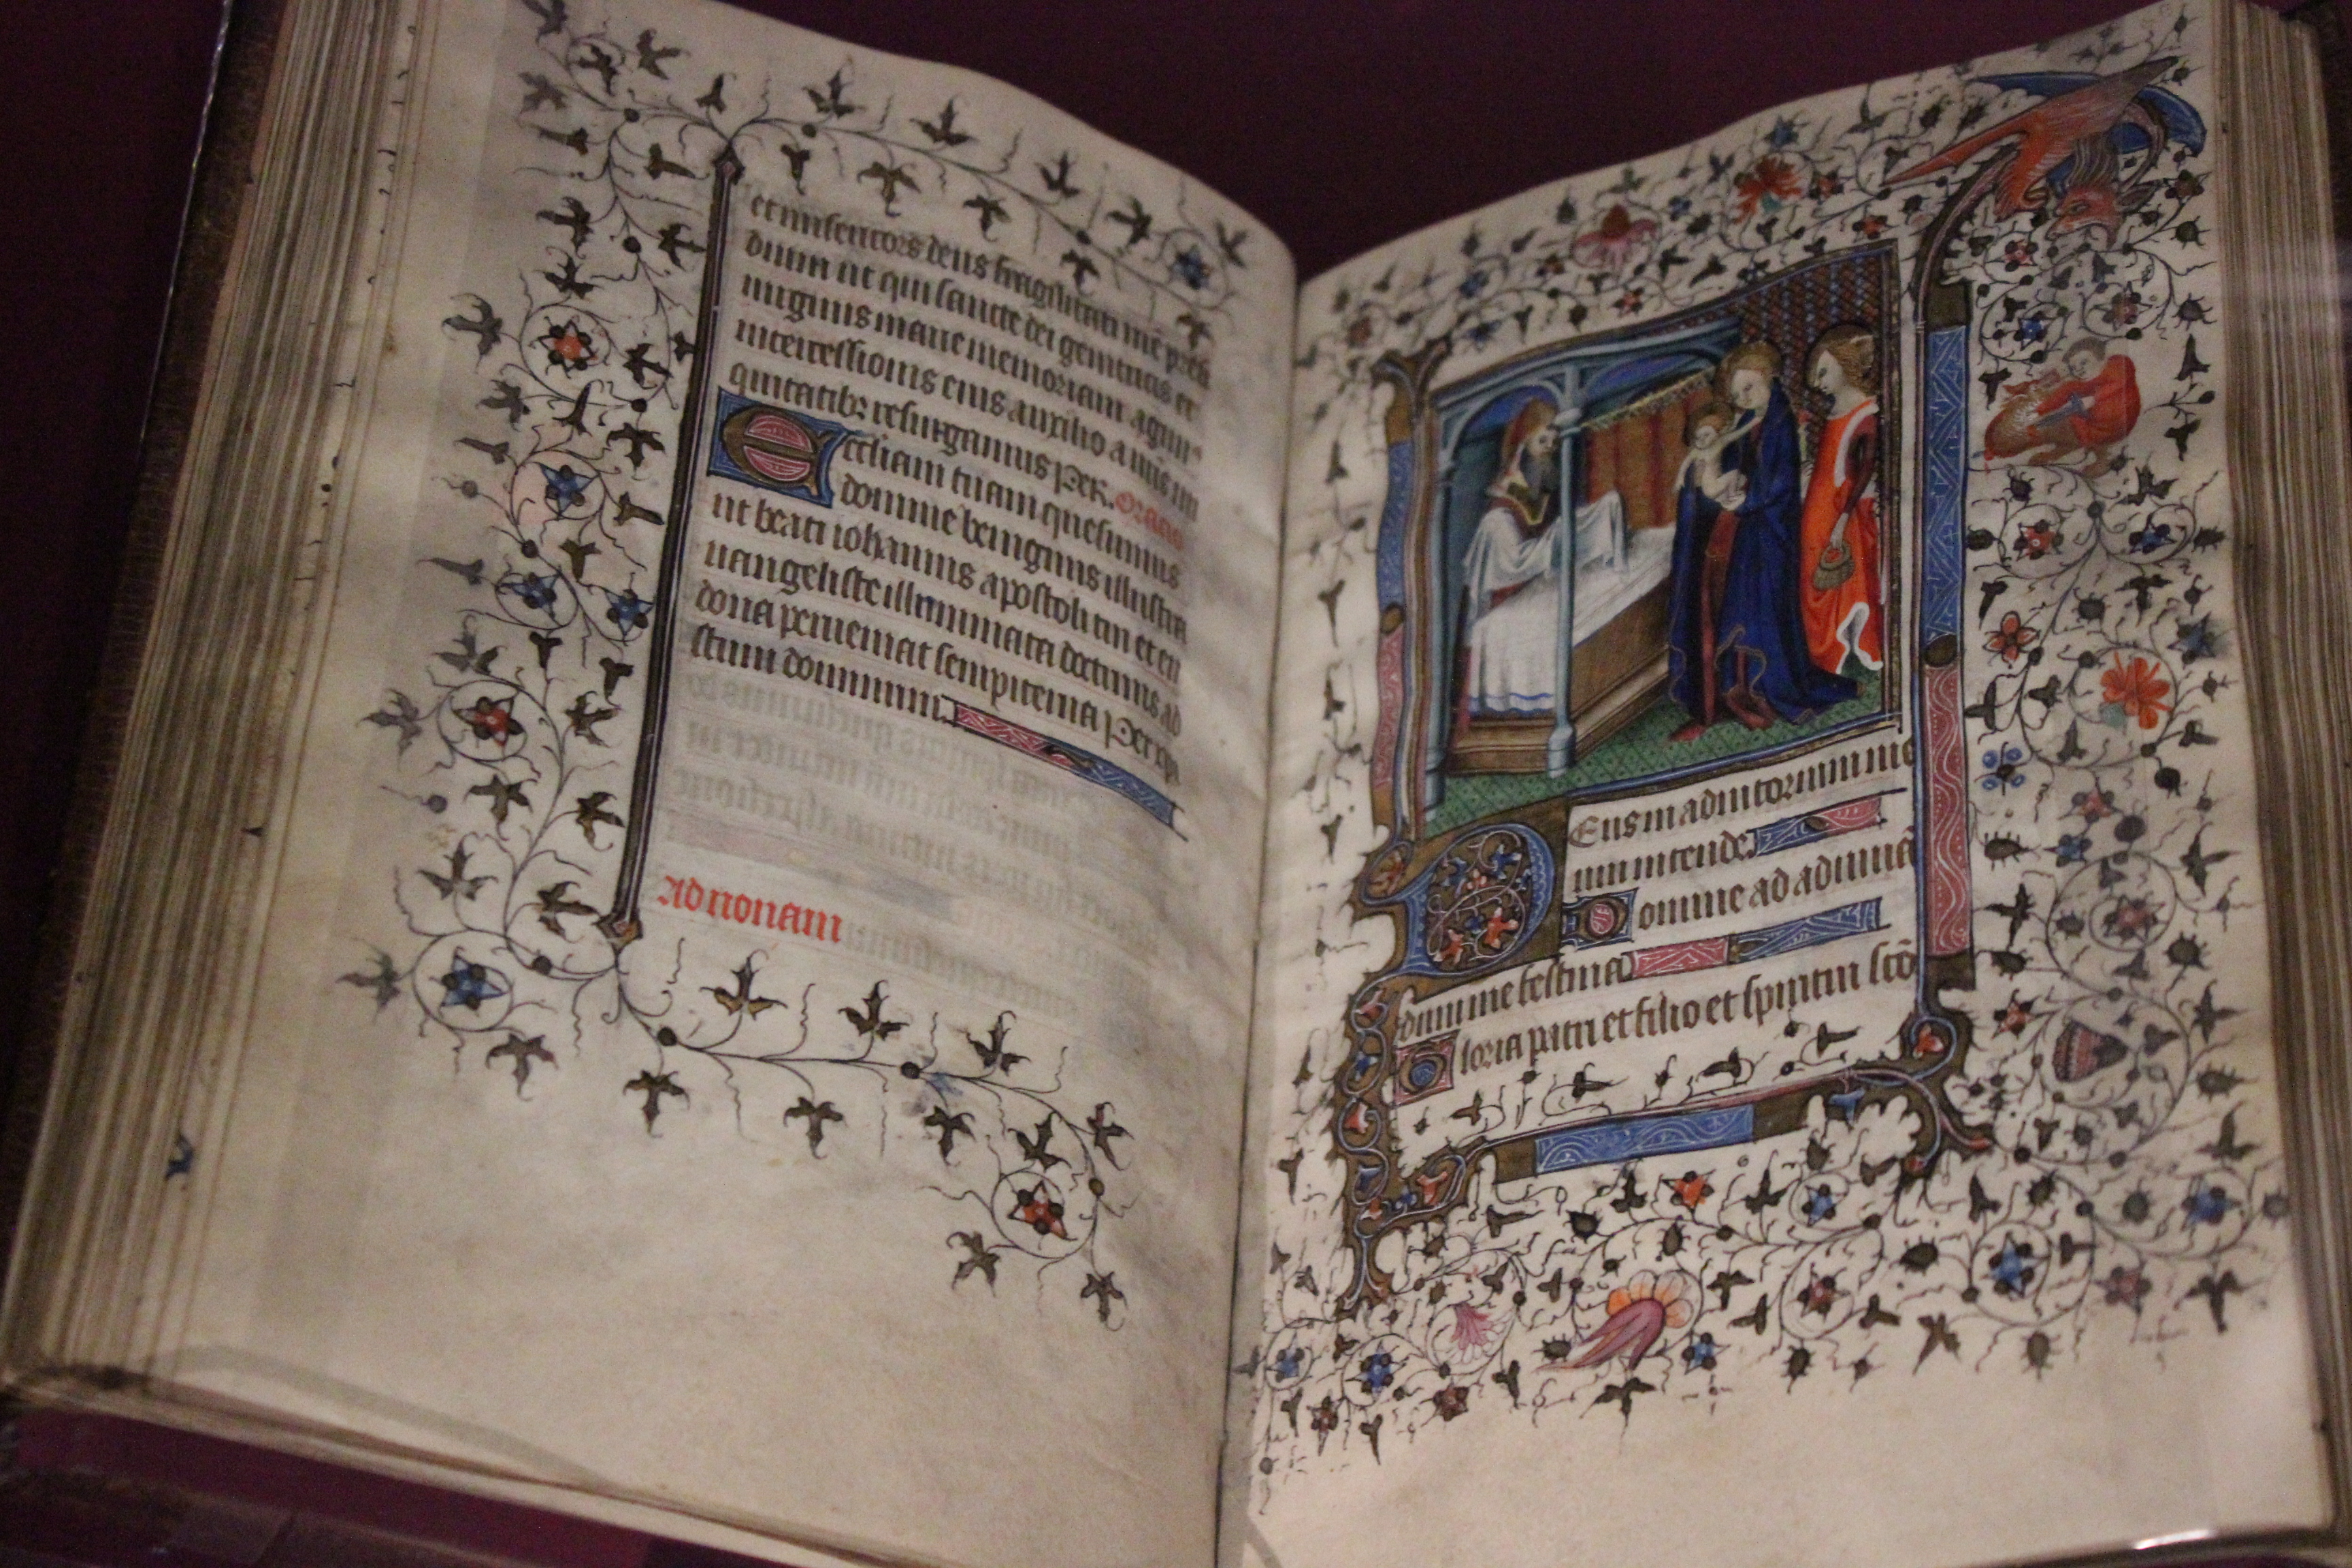 et misericors deus fragilitati nr̄e presi
dium ut qui sancte dei genitricis et
uirginis marie memoriam agimꝰ
intercessionis eius auxilio a nr̄is ini
quitatibꝫ resurgamus Per. Oratio
Eccliam tuam quesumus
domine benignus illustra
ut beati iohannis apostoli tui et eu
uangeliste illuminata doctrinis ad
dona perueniat sempiterna Per xp̄m
dominum
Ad nonam
Deus in adiutorium me
um intende
Domine ad adiuuā
dum me festina
Gloria patri et filio et spiritui scō